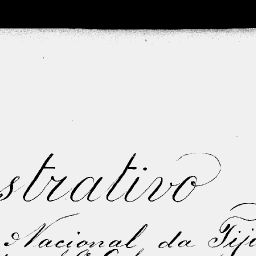 strativo
Nacional da Tiji